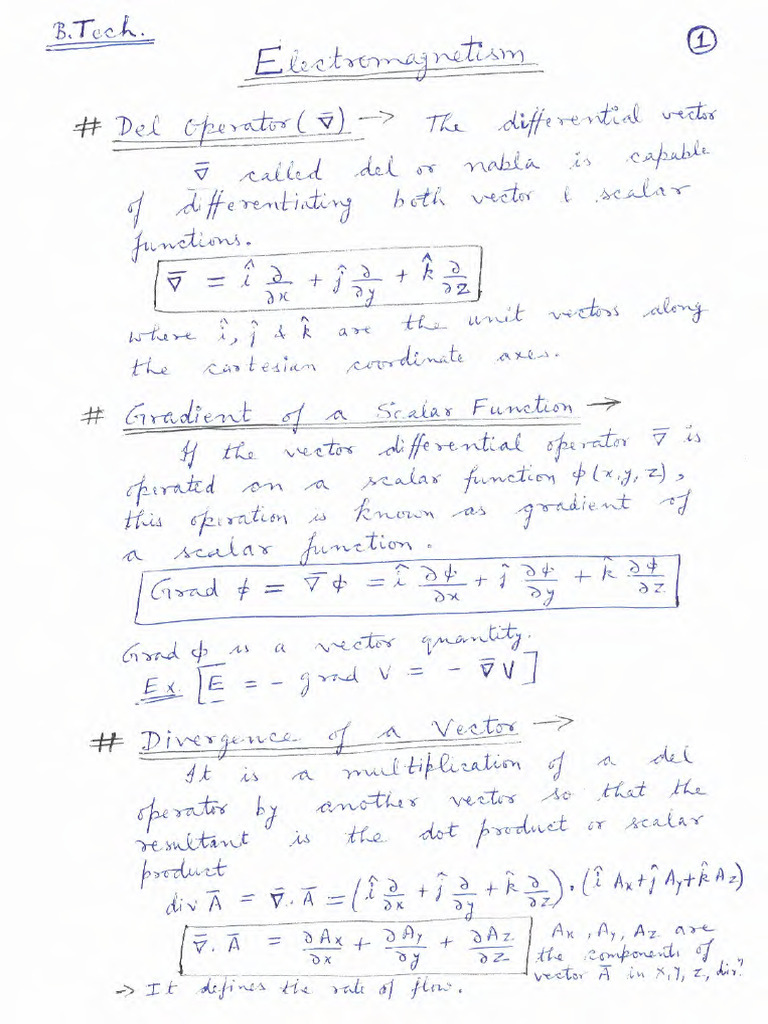 B.Tech.
1
Electromagnetism
# Del Operator (∇̅) → The differential vector
∇̅ called del or nabla is capable
of differentiating both vector & scalar
functions.
∇̅ = î ∂/∂x + ĵ ∂/∂y + k̂ ∂/∂z
where î, ĵ & k̂ are the unit vectors along
the cartesian coordinate axes.
# Gradient of a Scalar Function →
If the vector differential operator ∇̅ is
operated on a scalar function ϕ(x,y,z),
this operation is known as gradient of
a scalar function.
Grad ϕ = ∇̅ϕ = î ∂ϕ/∂x + ĵ ∂ϕ/∂y + k̂ ∂ϕ/∂z
Grad ϕ is a vector quantity.
Ex. [E̅ = - grad V = - ∇̅V]
# Divergence of a Vector →
It is a multiplication of a del
operator by another vector so that the
resultant is the dot product or scalar
product
div A̅ = ∇̅.A̅ = (î ∂/∂x + ĵ ∂/∂y + k̂ ∂/∂z).(î Ax + ĵ Ay + k̂ Az)
∇̅.A̅ = ∂Ax/∂x + ∂Ay/∂y + ∂Az/∂z
Ax, Ay, Az are
the components of
vector A̅ in x, y, z, dirⁿ
→ It defines the rate of flow.